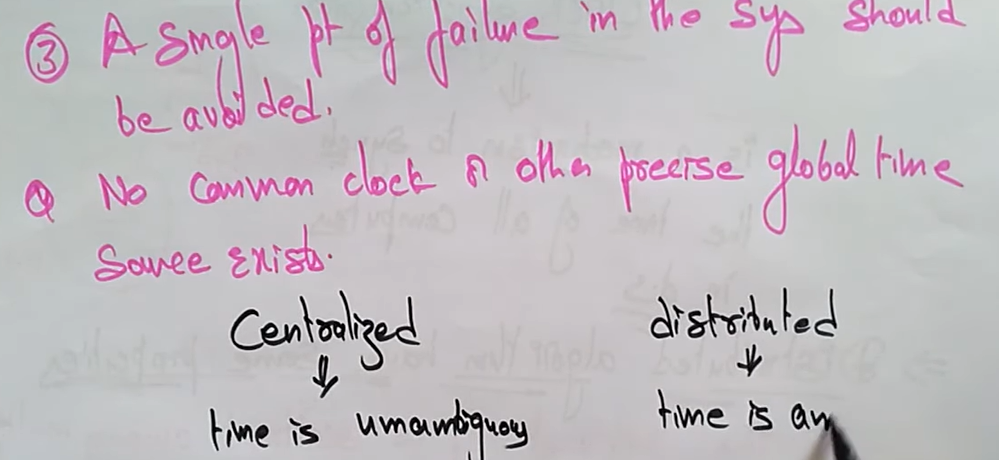 ③ A single pt of failure in the sys should
be avoided.
④ No common clock or other precise global time
source exists.
Centralized distributed
↓ ↓
time is umambiguous time is am